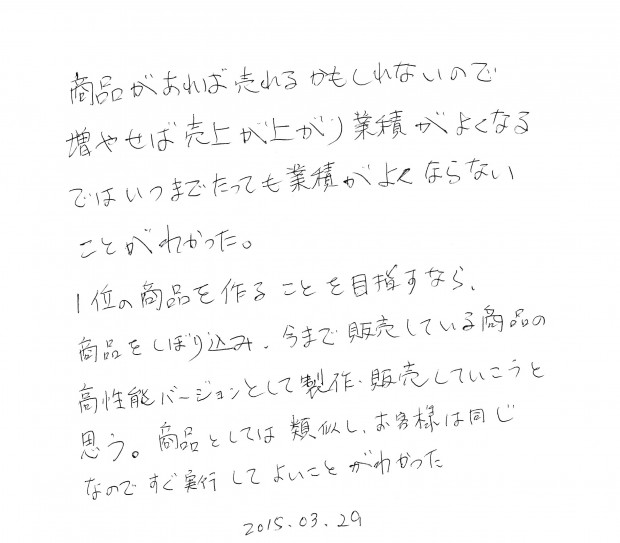 商品があれば売れるかもしれないので
増やせば売上が上がり業績がよくなる
ではいつまでたっても業績がよくならない
ことがわかった。
1位の商品を作ることを目指すなら、
商品をしぼり込み、今まで販売している商品の
高性能バージョンとして製作・販売していこうと
思う。商品としては類似し、お客様は同じ
なのですぐ実行してよいことがわかった
2015.03.29